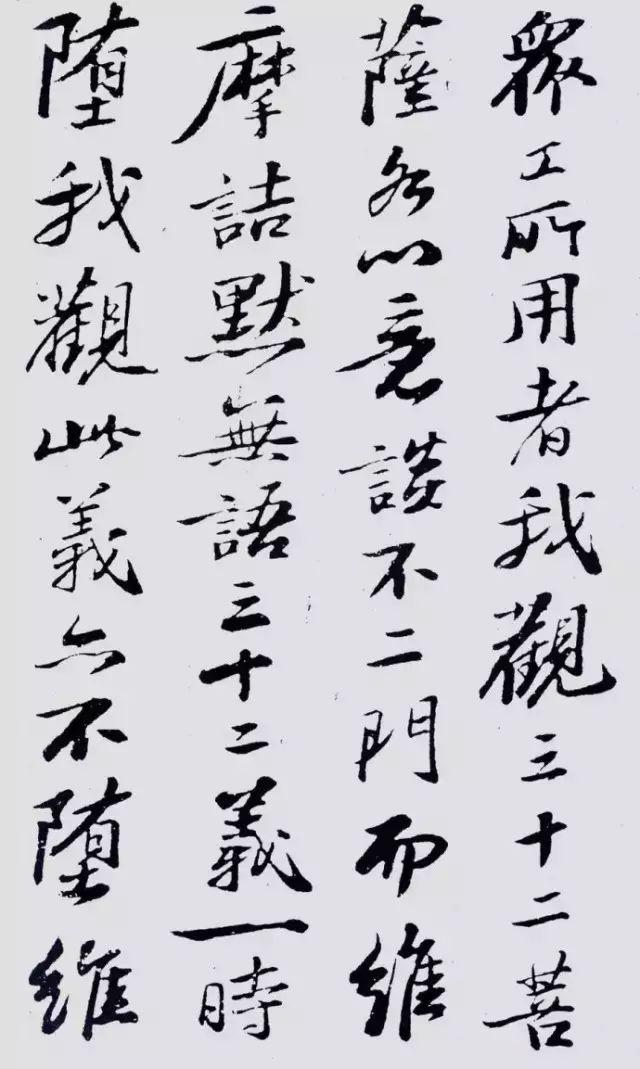 衆工所用者我觀三十二菩
薩各以意談不二門而維
摩詰默無語三十二義一時
墮我觀此義亦不墮維